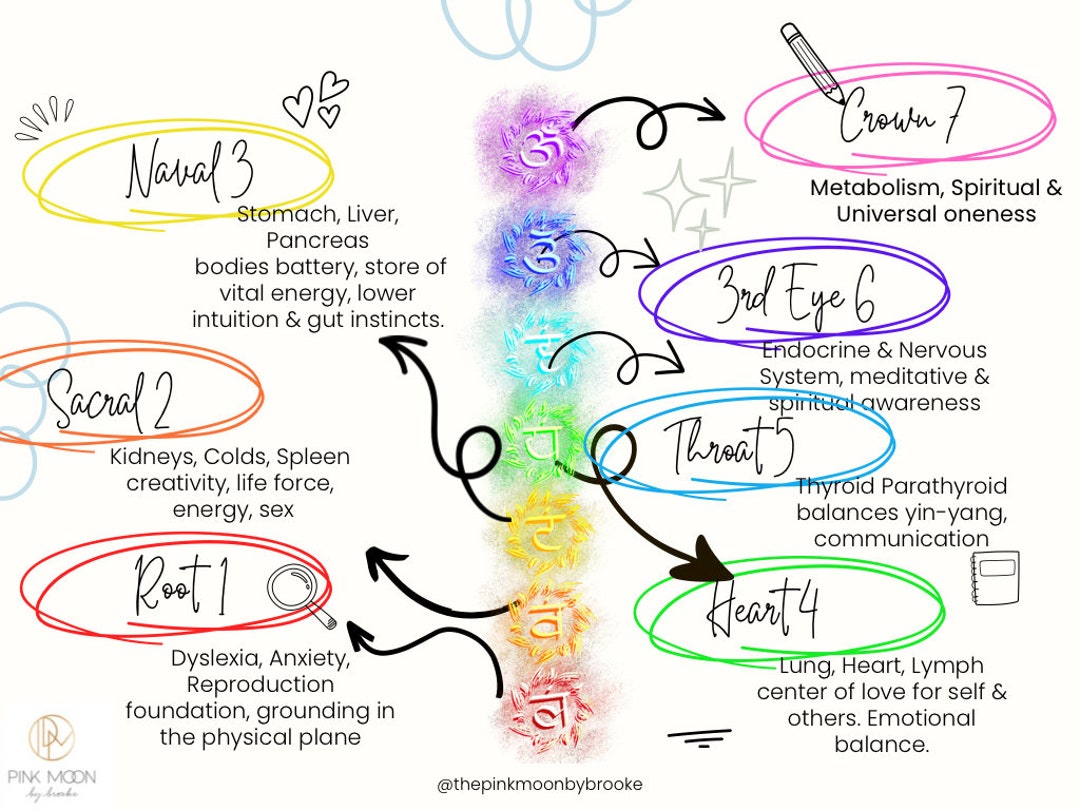 Crown 7
Metabolism, Spiritual &
Universal oneness
Naval 3
Stomach, Liver,
Pancreas
bodies battery, store of
vital energy, lower
intuition & gut instincts.
3rd Eye 6
Endocrine & Nervous
System, meditative &
spiritual awareness
Sacral 2
Kidneys, Colds, Spleen
creativity, life force,
energy, sex
Throat 5
Thyroid Parathyroid
balances yin-yang,
communication
Root 1
Dyslexia, Anxiety,
Reproduction
foundation, grounding in
the physical plane
Heart 4
Lung, Heart, Lymph
center of love for self &
others. Emotional
balance.
ॐ
ॐ
हं
यं
रं
वं
लं
PINK MOON
by brooke
@thepinkmoonbybrooke